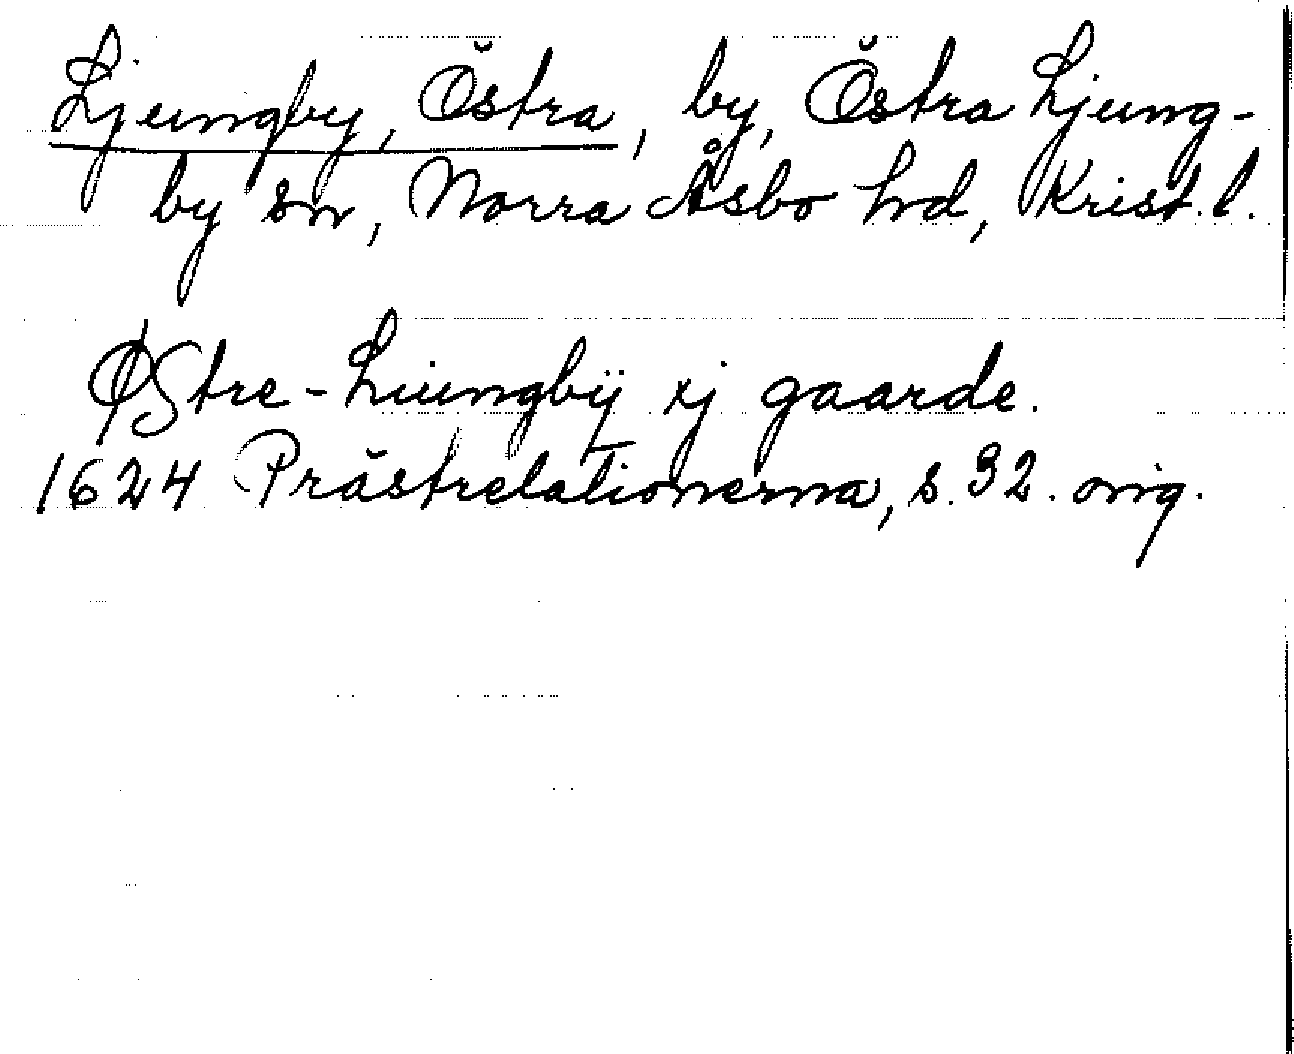 Ljungby, Östra, by, Östra Ljung-
by sn, Norra Åsbo hd, Krist. l.
ØStre-Liungbÿ xj gaarde.
1624 Prästrelationerna, s. 32. orig.